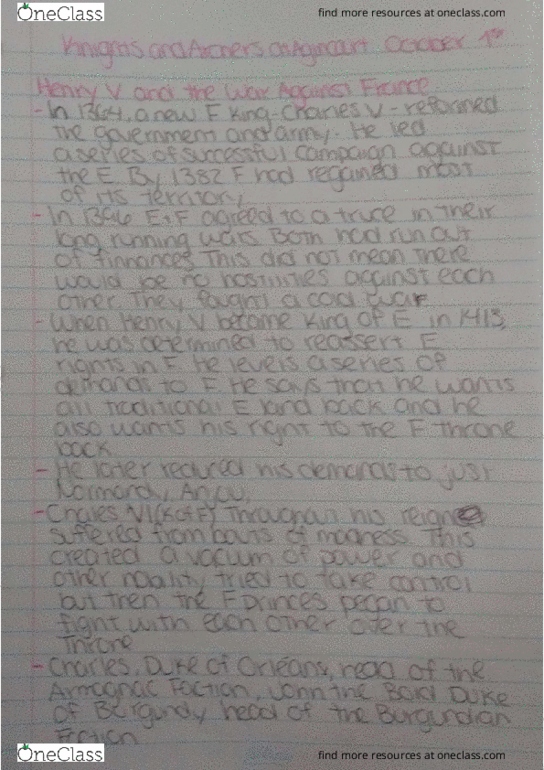 OneClass
find more resources at oneclass.com
Knights and Archers at Agincourt October 1st
Henry V and the War Against France
- In 1364, a new F King - Charles V - reformed
the government and army. He led
a series of successful campaign against
the E By 1382 F had regained most
of its territory
- In 1396 E+F agreed to a truce in their
long running wars Both had run out
of finnances This did not mean there
would be no hostilities against each
other They fought a cold war
- When Henry V became King of E in 1413,
he was determined to reassert E
rights in F He levels a series of
demands to F. He says that he wants
all traditional E land back and he
also wants his right to the F throne
back
- He later reduced his demands to just
Normandy, Anjou,
- Charles VI (K of F) Throughout his reign
suffered from bouts of madness. This
created a vacum of power and
other nobility tried to take control
but then the F Princes began to
fight with each other over the
Throne
- Charles, Duke of Orleans, head of the
Armagnac Faction, John the Bold Duke
of Burgundy head of the Burgundian
Faction
OneClass
find more resources at oneclass.com